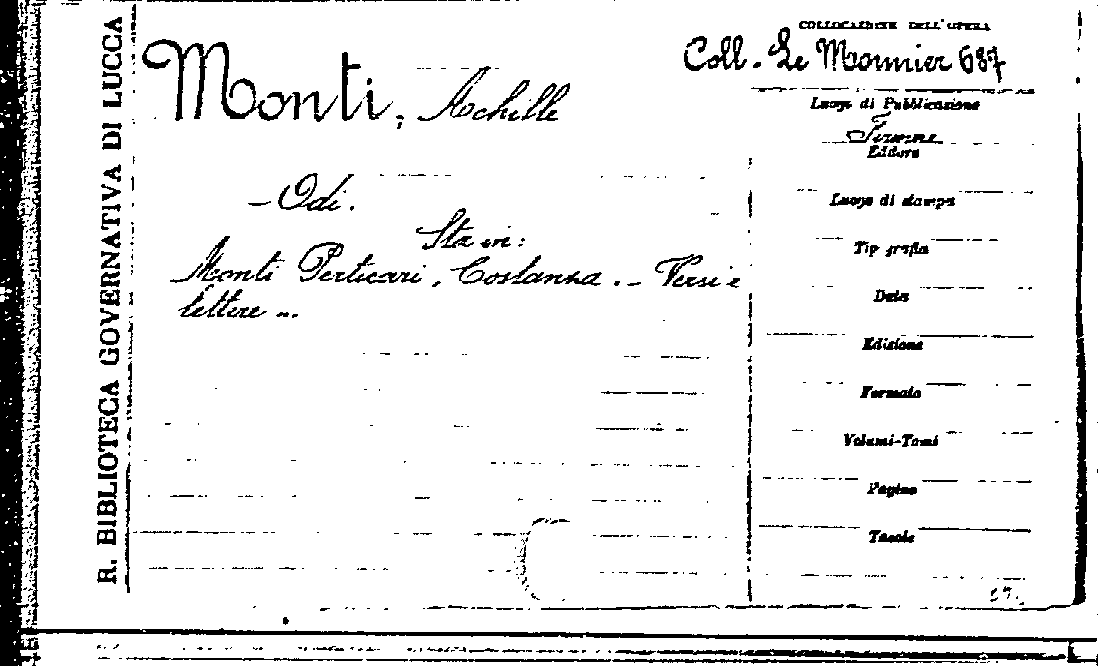 R. BIBLIOTECA GOVERNATIVA DI LUCCA
Monti, Achille
- Odi.
Sta in:
Monti Perticari, Costanza. - Versi e
lettere ...
COLLOCAZIONE DELL'OPERA
Coll. Le Monnier 687
Luogo di Pubblicazione
Firenze
Editore
Luogo di stampa
Tipografia
Data
Edizione
Formato
Volumi-Tomi
Pagine
Tavole